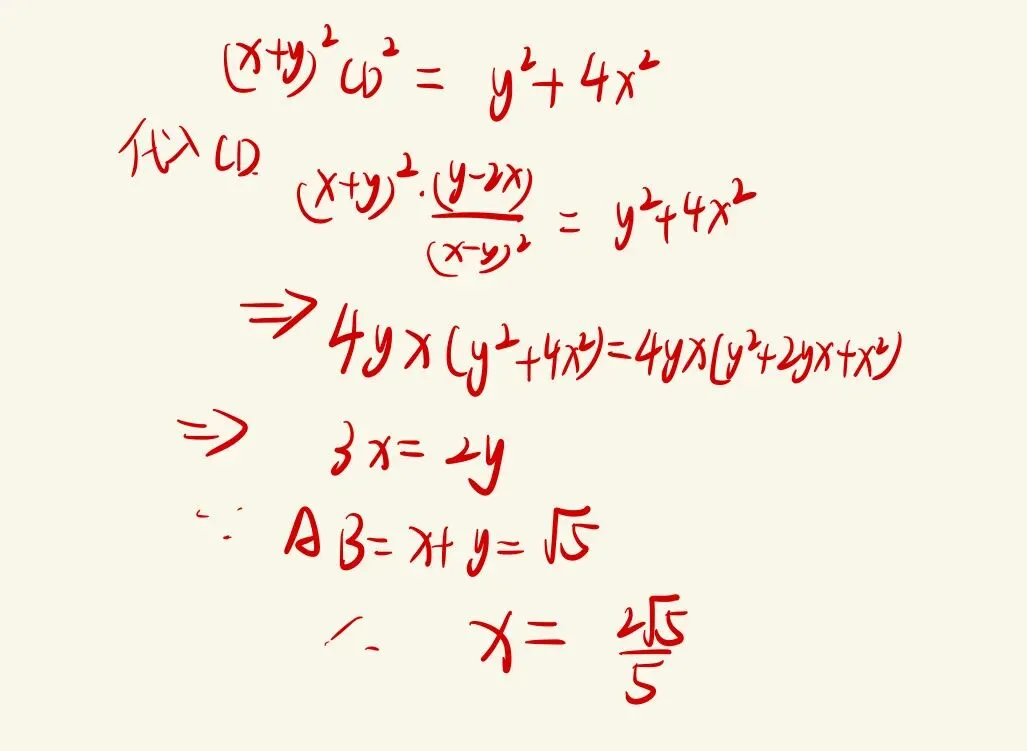 (x+y)² CD² = y²+4x²
代入CD.
(x+y)²·(y-2x)/(x-y)² = y²+4x²
⇒ 4yx(y²+4x²)=4yx(y²+2yx+x²)
⇒ 3x=2y
∵ AB=x+y=√5
∴ x= 2√5/5